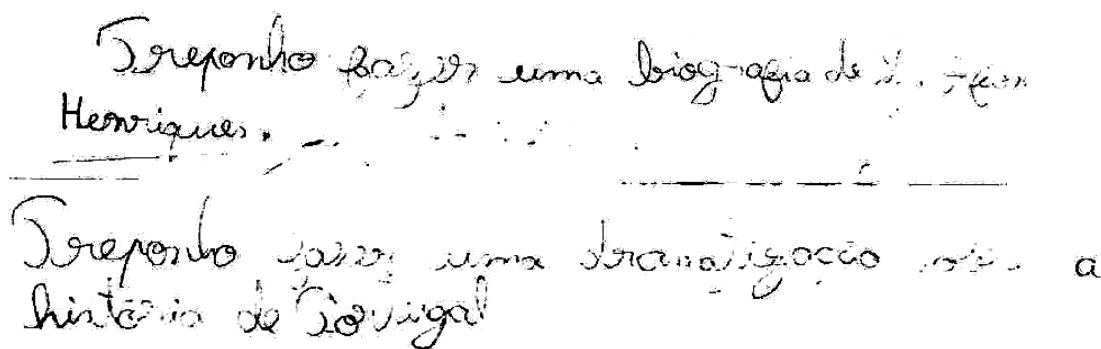 Treponho fazer uma biografia de D. Afon
Henriques.
Treponho fazer uma dramatização sobre a
história de Portugal